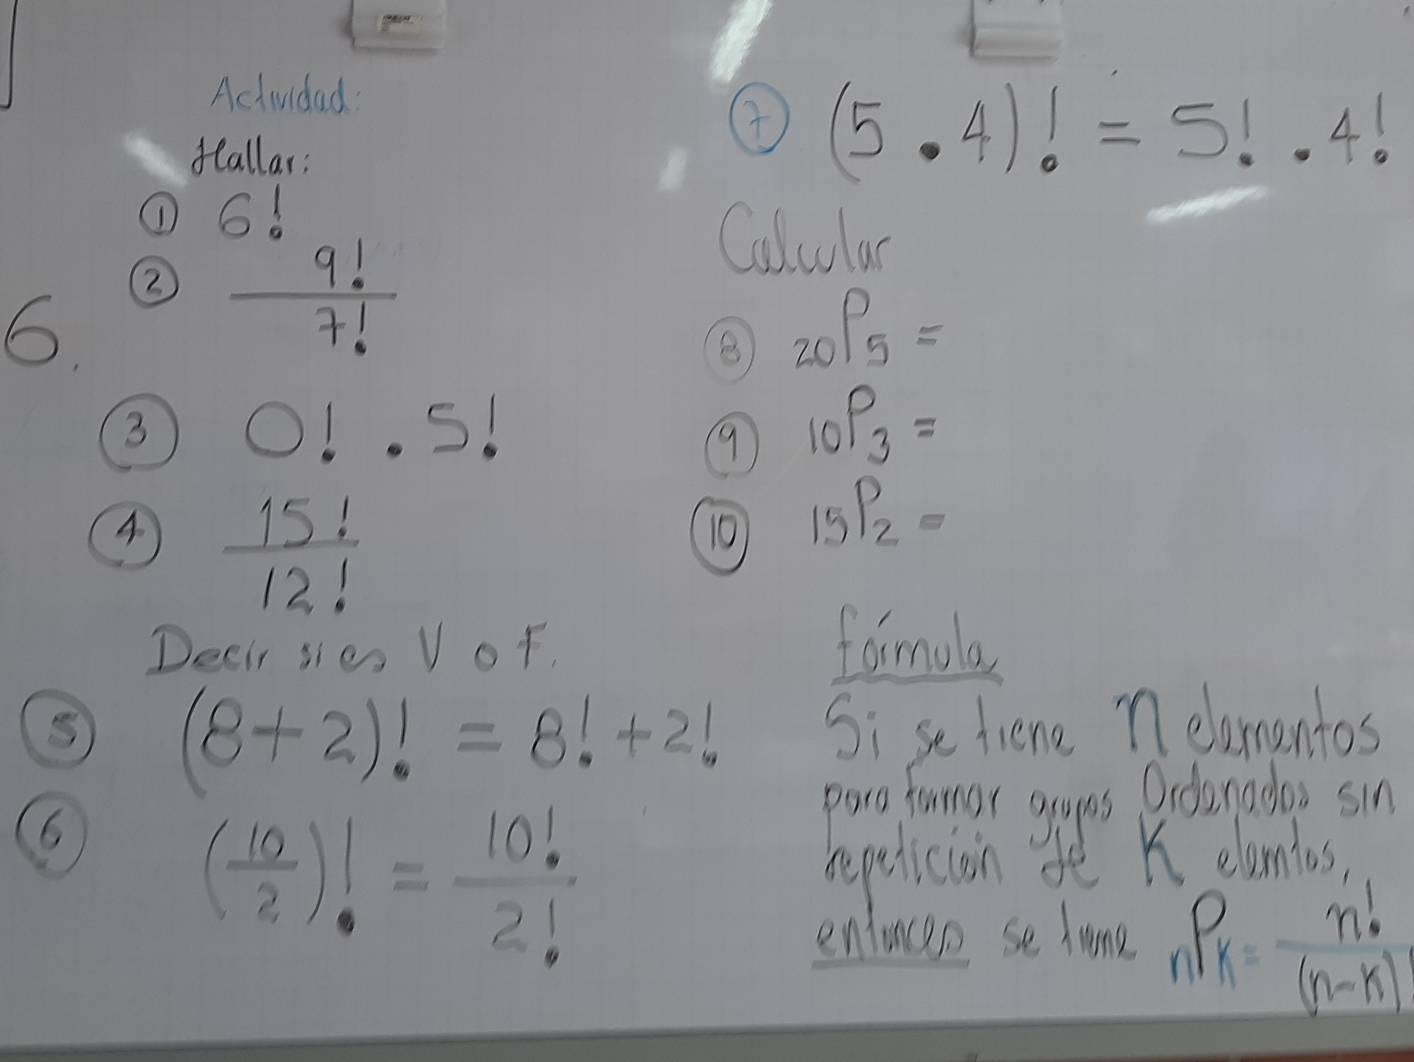 Actividad:
Hallar:
① 6!
② 9!
7!
6.
③ 0! . 5!
④ 15!
12!
Decir si es V o F.
⑤ (8+2)! = 8! + 2!
⑥ (10/2)! = 10!
2!
⑦ (5 . 4)! = 5! . 4!
Calcular
⑧ 20P5 =
⑨ 10P3 =
⑩ 15P2 =
fórmula
Si se tiene n elementos
para formar grupos Ordenados sin
repetición de K elemtos,
entonces se tiene nPK = n!
(n-K)!